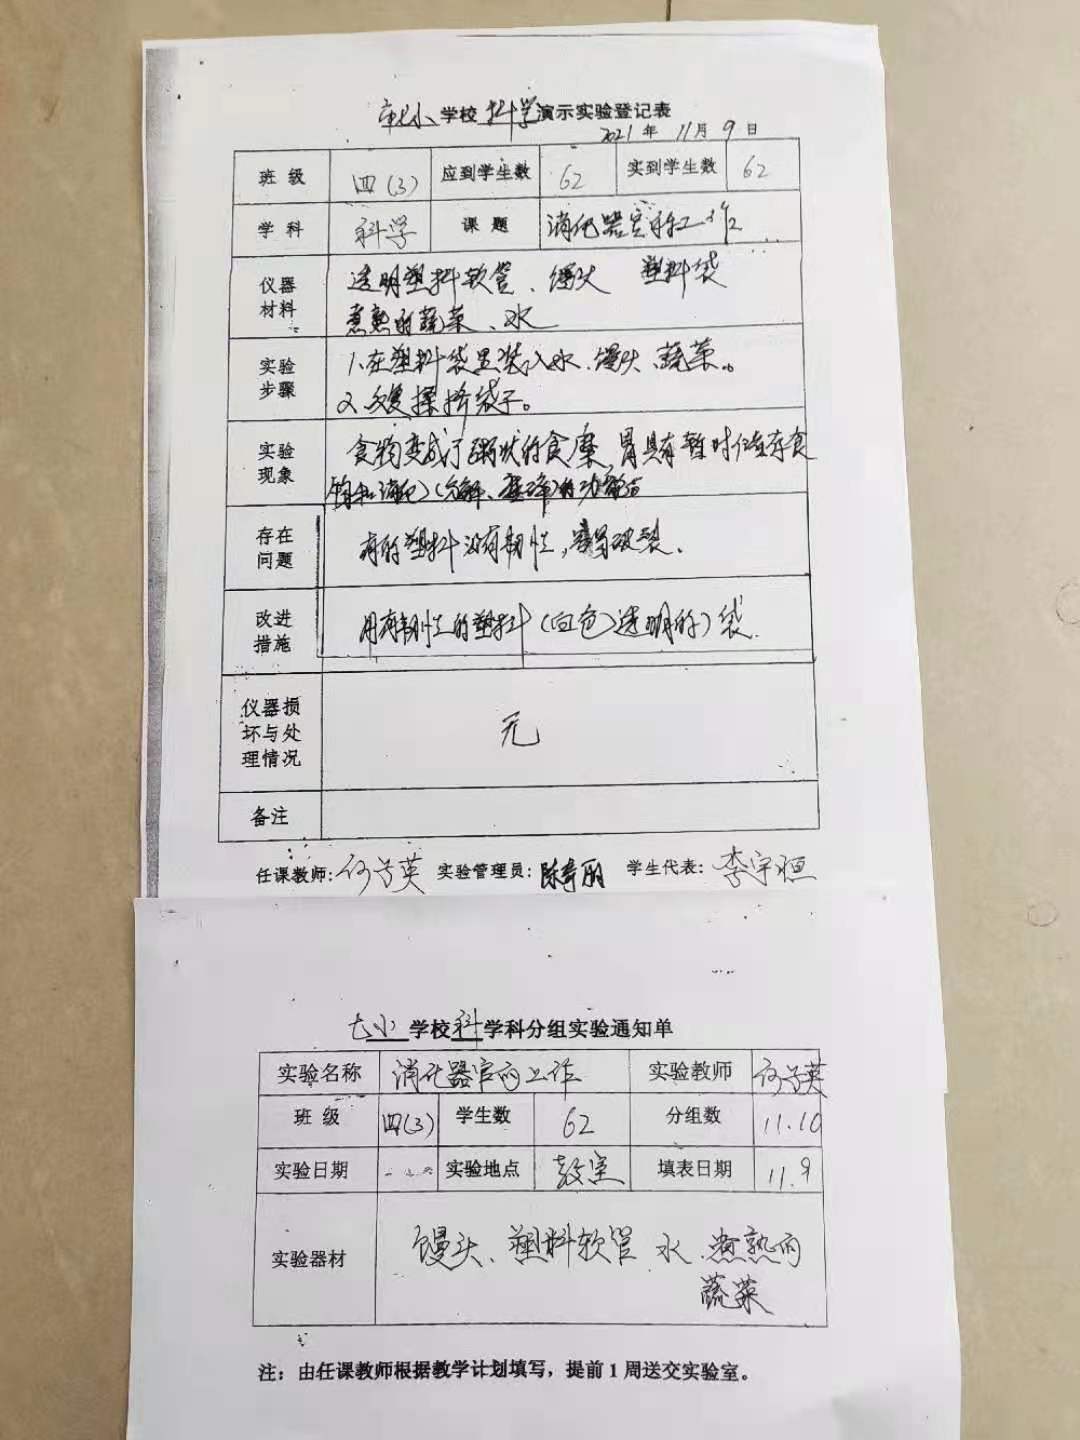 市七小学校科学演示实验登记表
2021年11月9日
班级 四(3) 应到学生数 62 实到学生数 62
学科 科学 课题 消化器官的工作
仪器材料 透明塑料软管、馒头 塑料袋
煮熟的蔬菜、水
实验步骤 1.在塑料袋里装入水、馒头、蔬菜。
2.反复揉挤袋子。
实验现象 食物变成了粥状的食糜,胃具有暂时储存食
物和消化(分解、磨碎)的功能
存在问题 有的塑料没有韧性,容易破裂.
改进措施 用有韧性的塑料(白色)透明的)袋.
仪器损坏与处理情况 无
备注
任课教师: 英 实验管理员: 陈 丽 学生代表: 李宇恒
七小学校科学科分组实验通知单
实验名称 消化器官的工作 实验教师 英
班级 四(3) 学生数 62 分组数 11.10
实验日期 实验地点 教室 填表日期 11.9
实验器材 馒头、塑料软管 水、煮熟的
蔬菜
注:由任课教师根据教学计划填写,提前1周送交实验室。